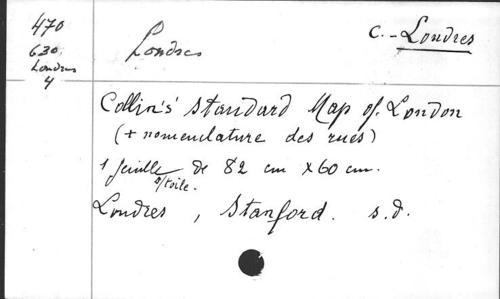 470
630
Londres
4
Londres
C. - Londres
Collin's' Standard Map of London
(+ nomenclature des rues)
1 feuille de 82 cm x 60 cm.
s/toile.
Londres , Stanford. s.d.